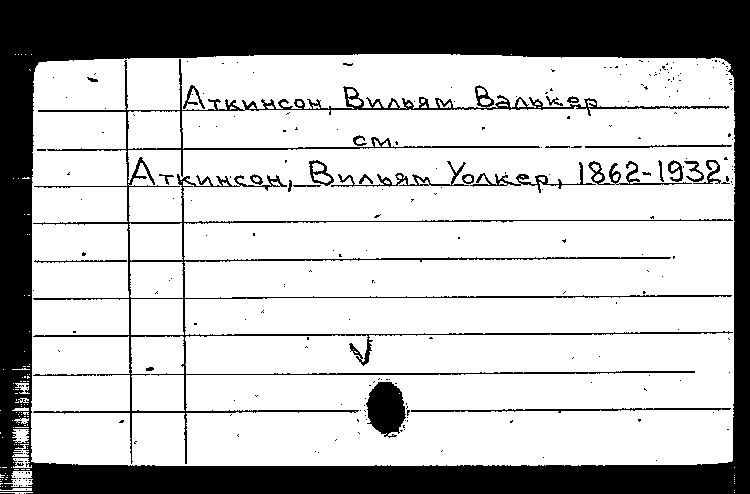 Аткинсон, Вильям Валькер
см.
Аткинсон, Вильям Уолкер, 1862-1932.